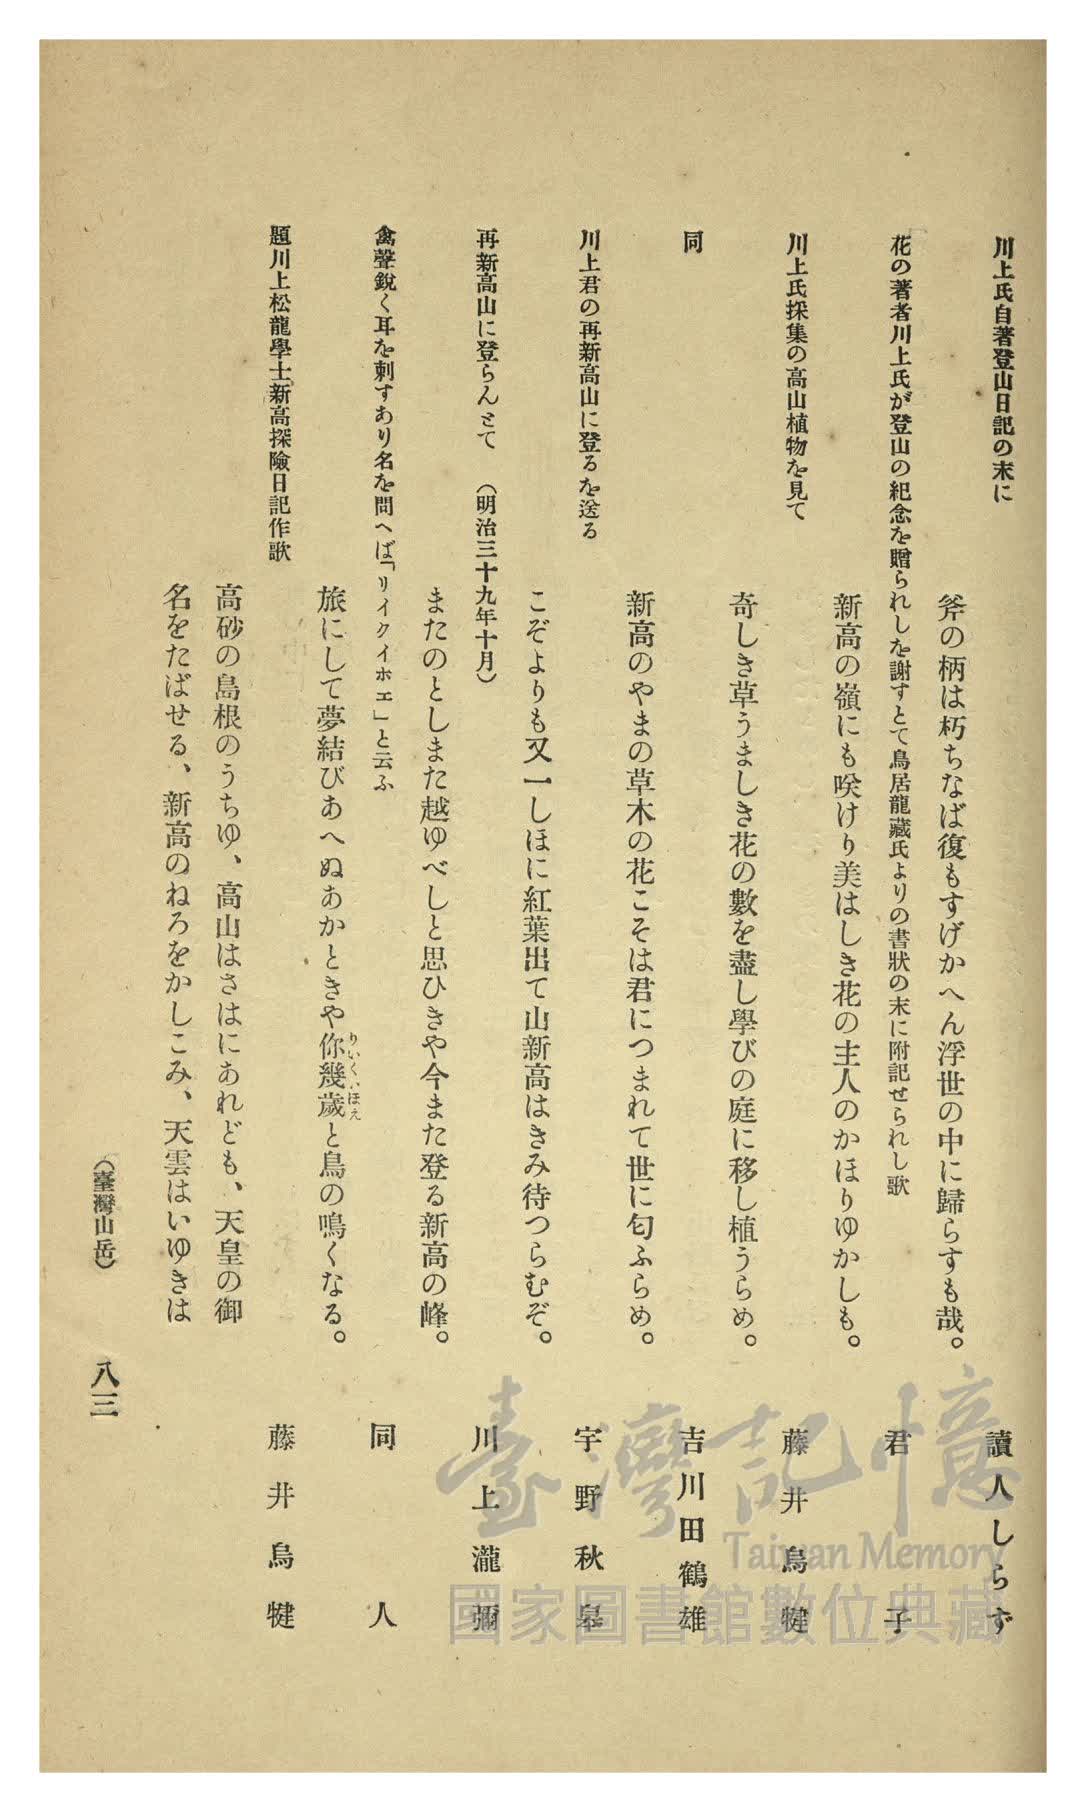 川上氏自著登山日記の末に　讀人しらず
斧の柄は朽ちなば復もすげかへん浮世の中に歸らすも哉。
花の著者川上氏が登山の紀念を贈られしを謝すとて鳥居龍藏氏よりの書狀の末に附記せられし歌　君子
新高の嶺にも咲けり美はしき花の主人のかほりゆかしも。
川上氏採集の高山植物を見て　藤井烏犍
奇しき草うましき花の數を盡し學びの庭に移し植うらめ。
同　吉川田鶴雄
新高のやまの草木の花こそは君につまれて世に匂ふらめ。
川上君の再新高山に登るを送る　宇野秋皐
こぞよりも又一しほに紅葉出て山新高はきみ待つらむぞ。
再新高山に登らんとて　（明治三十九年十月）　川上瀧彌
またのとしまた越ゆべしと思ひきや今また登る新高の峰。
禽聲銳く耳を刺すあり名を問へば「リイクイホエ」と云ふ　同人
旅にして夢結びあへぬあかときや你幾歲と鳥の鳴くなる。
りいくいほえ
題川上松龍學士新高探險日記作歌　藤井烏犍
高砂の島根のうちゆ、高山はさはにあれども、天皇の御
名をたばせる、新高のねろをかしこみ、天雲はいゆきは
（臺灣山岳）　八三
臺灣記憶
Taiwan Memory
國家圖書館數位典藏